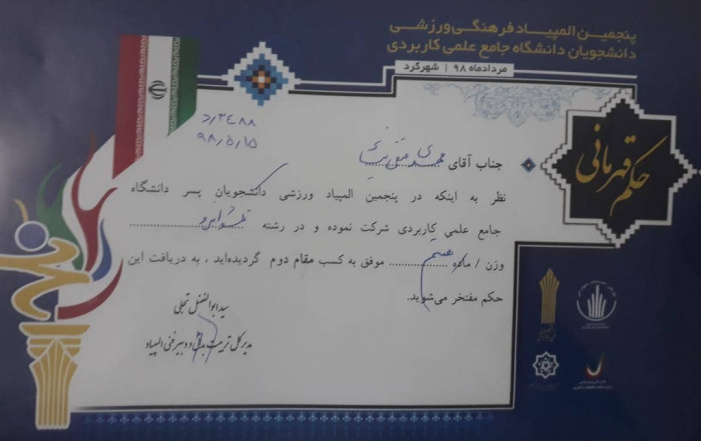 پنجمین المپیاد فرهنگی ورزشی
دانشجویان دانشگاه جامع علمی کاربردی
مردادماه ۹۸ | شهرکرد
حکم قهرمانی
۹۸٫۵٫۱۵
جناب آقای
نظر به اینکه در پنجمین المپیاد ورزشی دانشجویان پسر دانشگاه
جامع علمی کاربردی شرکت نموده و در رشته
وزن / ماده ................ موفق به کسب مقام دوم گردیده‌اید ، به دریافت این
حکم مفتخر می‌شوید.
سید ابوالفضل تجلی
مدیر کل تربیت بدنی و دبیر فنی المپیاد